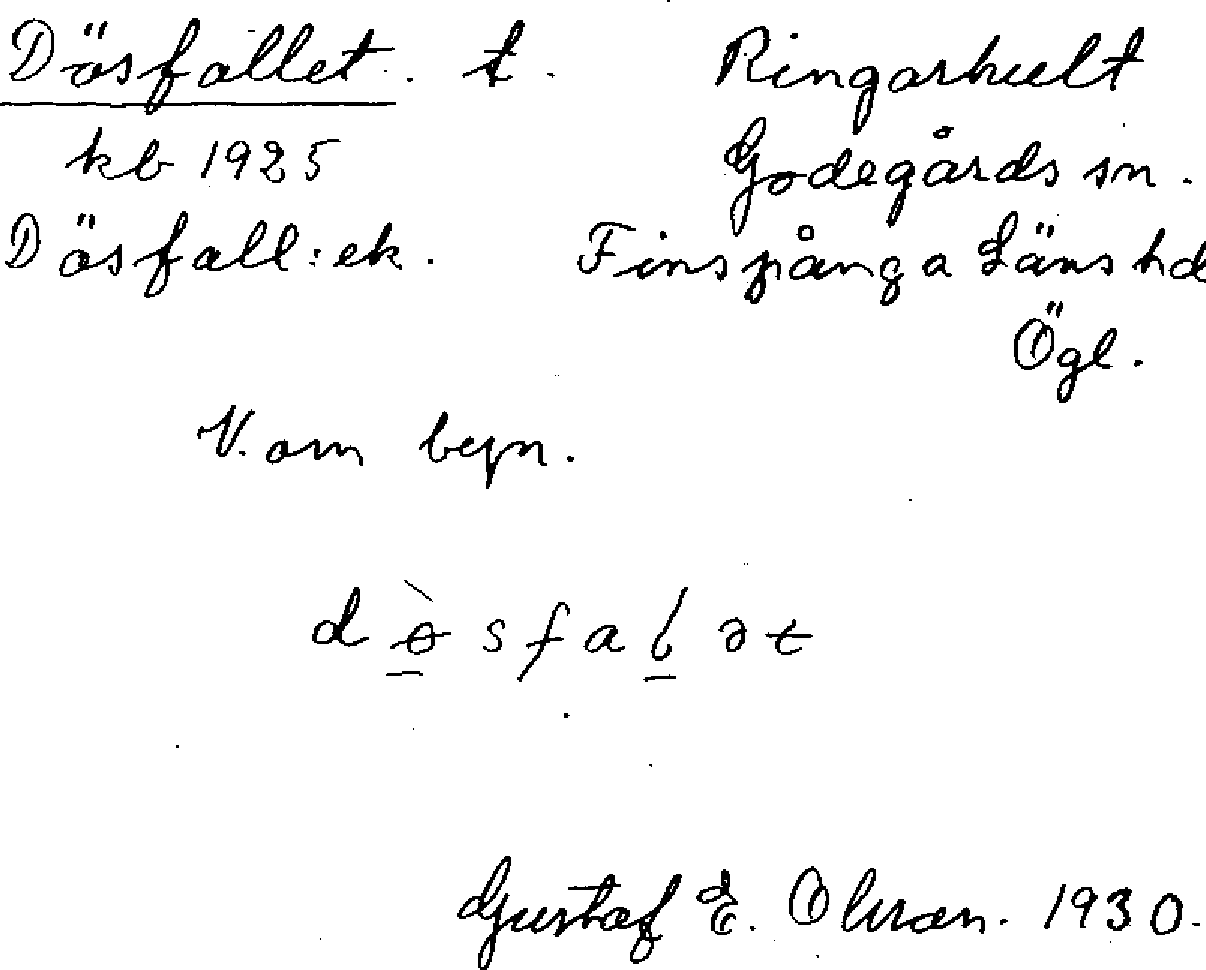 Dösfallet. t. Ringarhult
kb 1925 Godegårds sn.
Dösfall:ek. Finspånga Läns hd
Ögl.
V. om byn.
d ɵ̀ s f a l ə t
Gustaf E. Olsson. 1930.